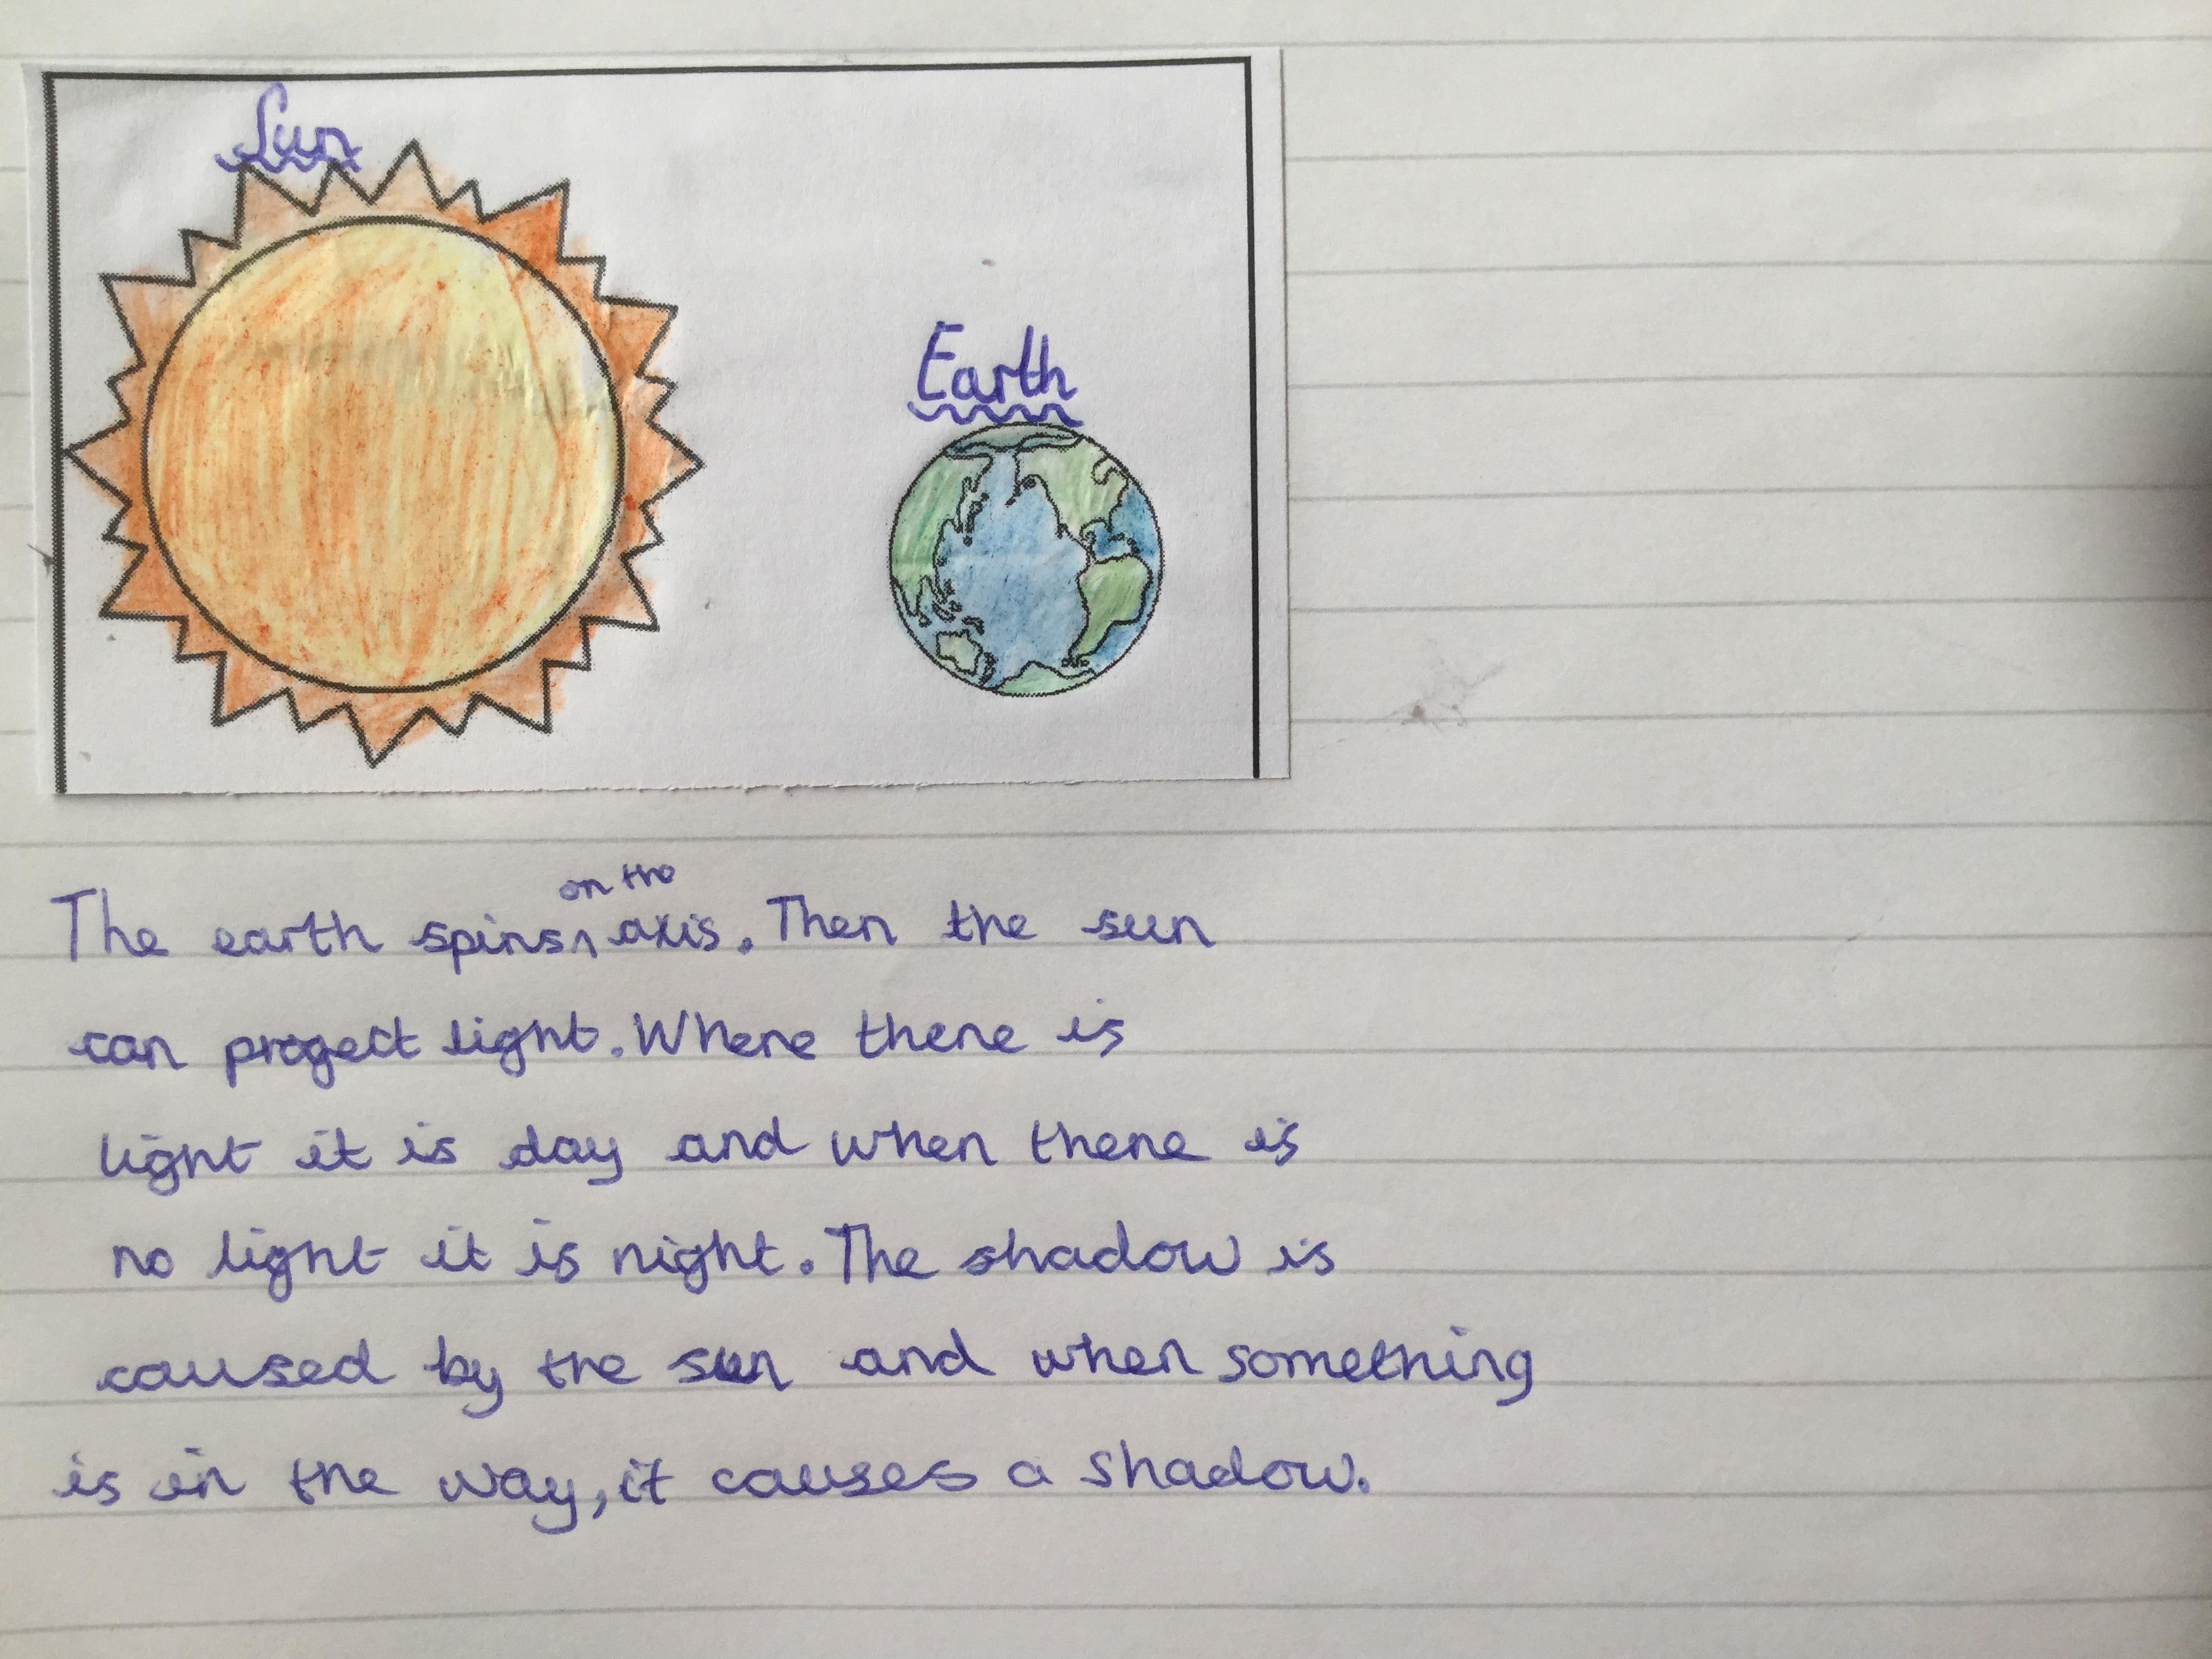 Sun
Earth
The earth spins on the axis. Then the sun
can progect light. Where there is
light it is day and when there is
no light it is night. The shadow is
caused by the sun and when something
is in the way, it causes a shadow.